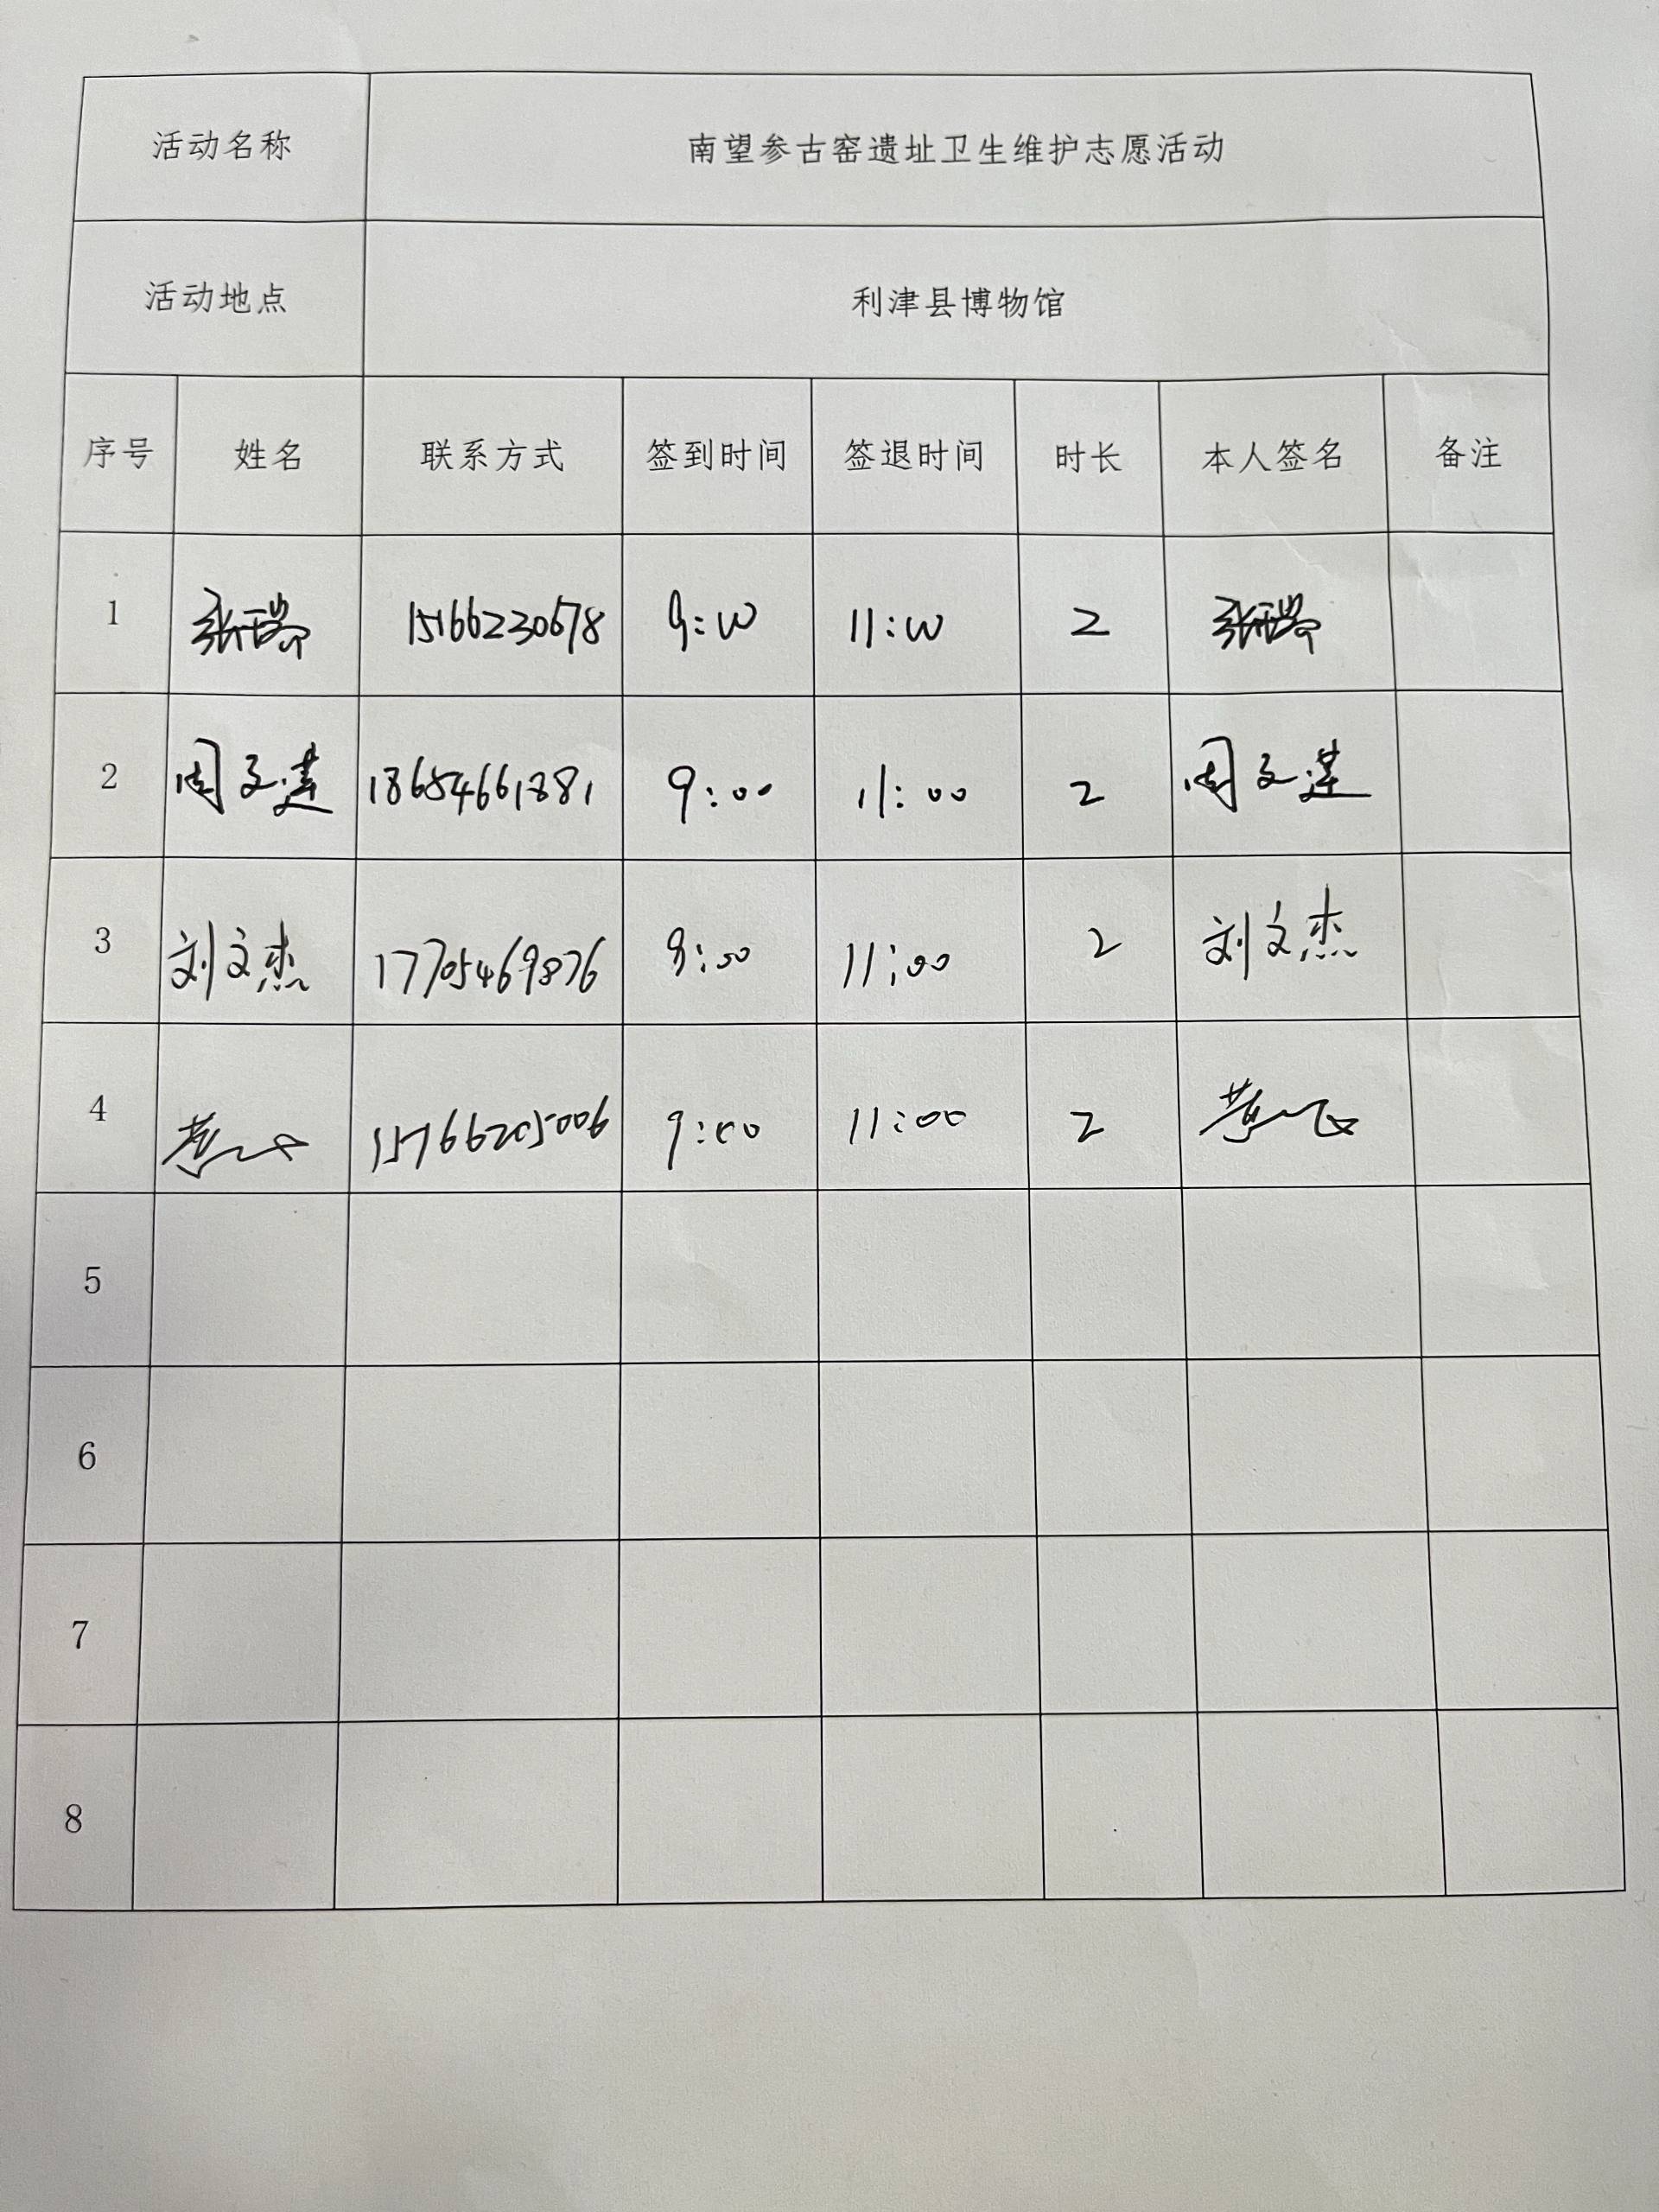 活动名称 南望参古窑遗址卫生维护志愿活动
活动地点 利津县博物馆
序号 姓名 联系方式 签到时间 签退时间 时长 本人签名 备注
1 张瑞 15166230678 9:00 11:00 2 张瑞
2 周文莲 18654661881 9:00 11:00 2 周文莲
3 刘文杰 17705469876 9:00 11:00 2 刘文杰
4 15166205006 9:00 11:00 2
5
6
7
8